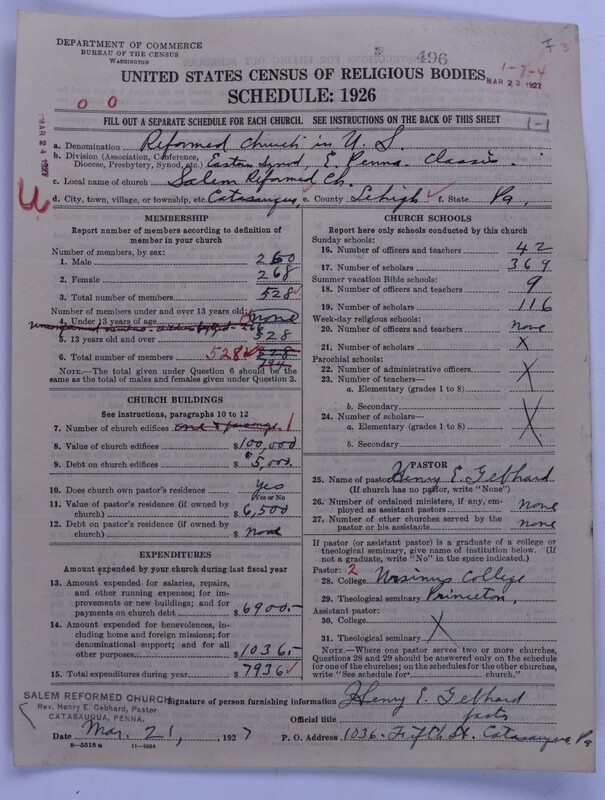 DEPARTMENT OF COMMERCE
BUREAU OF THE CENSUS
WASHINGTON
496
1-7-4
MAR 23 1927
F 3
UNITED STATES CENSUS OF RELIGIOUS BODIES
SCHEDULE: 1926
0 0
MAR 24 1927
FILL OUT A SEPARATE SCHEDULE FOR EACH CHURCH. SEE INSTRUCTIONS ON THE BACK OF THIS SHEET
a. Denomination Reformed Church in U. S.
b. Division (Association, Conference, Diocese, Presbytery, Synod, etc.) Eastern Synod, E. Penna. Classis.
c. Local name of church Salem Reformed Ch.
d. City, town, village, or township, etc. Catasauqua, e. County Lehigh f. State Pa.
MEMBERSHIP
Report number of members according to definition of
member in your church
Number of members, by sex:
1. Male 260
2. Female 268
3. Total number of members 528
Number of members under and over 13 years old:
4. Under 13 years of age none
5. 13 years old and over 528
6. Total number of members 528
NOTE.—The total given under Question 6 should be the
same as the total of males and females given under Question 3.
CHURCH BUILDINGS
See instructions, paragraphs 10 to 12
7. Number of church edifices 1
8. Value of church edifices $100,000
9. Debt on church edifices $5,000.
10. Does church own pastor's residence yes
Yes or No
11. Value of pastor's residence (if owned by
church) $6,500
12. Debt on pastor's residence (if owned by
church) $ none
EXPENDITURES
Amount expended by your church during last fiscal year
13. Amount expended for salaries, repairs,
and other running expenses; for im-
provements or new buildings; and for
payments on church debt $6900.-
14. Amount expended for benevolences,
including home and foreign missions; for
denominational support; and for all
other purposes $1036.-
15. Total expenditures during year $7936
CHURCH SCHOOLS
Report here only schools conducted by this church
Sunday schools:
16. Number of officers and teachers 42
17. Number of scholars 369
Summer vacation Bible schools:
18. Number of officers and teachers 9
19. Number of scholars 116
Week-day religious schools:
20. Number of officers and teachers none
21. Number of scholars X
Parochial schools:
22. Number of administrative officers
23. Number of teachers—
a. Elementary (grades 1 to 8)
b. Secondary
24. Number of scholars—
a. Elementary (grades 1 to 8)
b. Secondary
PASTOR
25. Name of pastor Henry E. Gebhard
(If church has no pastor, write "None")
26. Number of ordained ministers, if any, em-
ployed as assistant pastors none
27. Number of other churches served by the
pastor or his assistants none
If pastor (or assistant pastor) is a graduate of a college or
theological seminary, give name of institution below. (If
not a graduate, write "No" in the space indicated.)
Pastor: 2
28. College Ursinus College
29. Theological seminary Princeton,
Assistant pastor:
30. College
31. Theological seminary
NOTE.—Where one pastor serves two or more churches,
Questions 28 and 29 should be answered only on the schedule
for one of the churches; on the schedules for the other churches,
write "See schedule for church."
SALEM REFORMED CHURCH
Rev. Henry E. Gebhard, Pastor
CATASAUQUA, PENNA.
Signature of person furnishing information Henry E. Gebhard
Official title pastor
Date Mar. 21, 1927 P. O. Address 1036 - Fifth St. Catasauqua, Pa
8-5518 a 11-9024